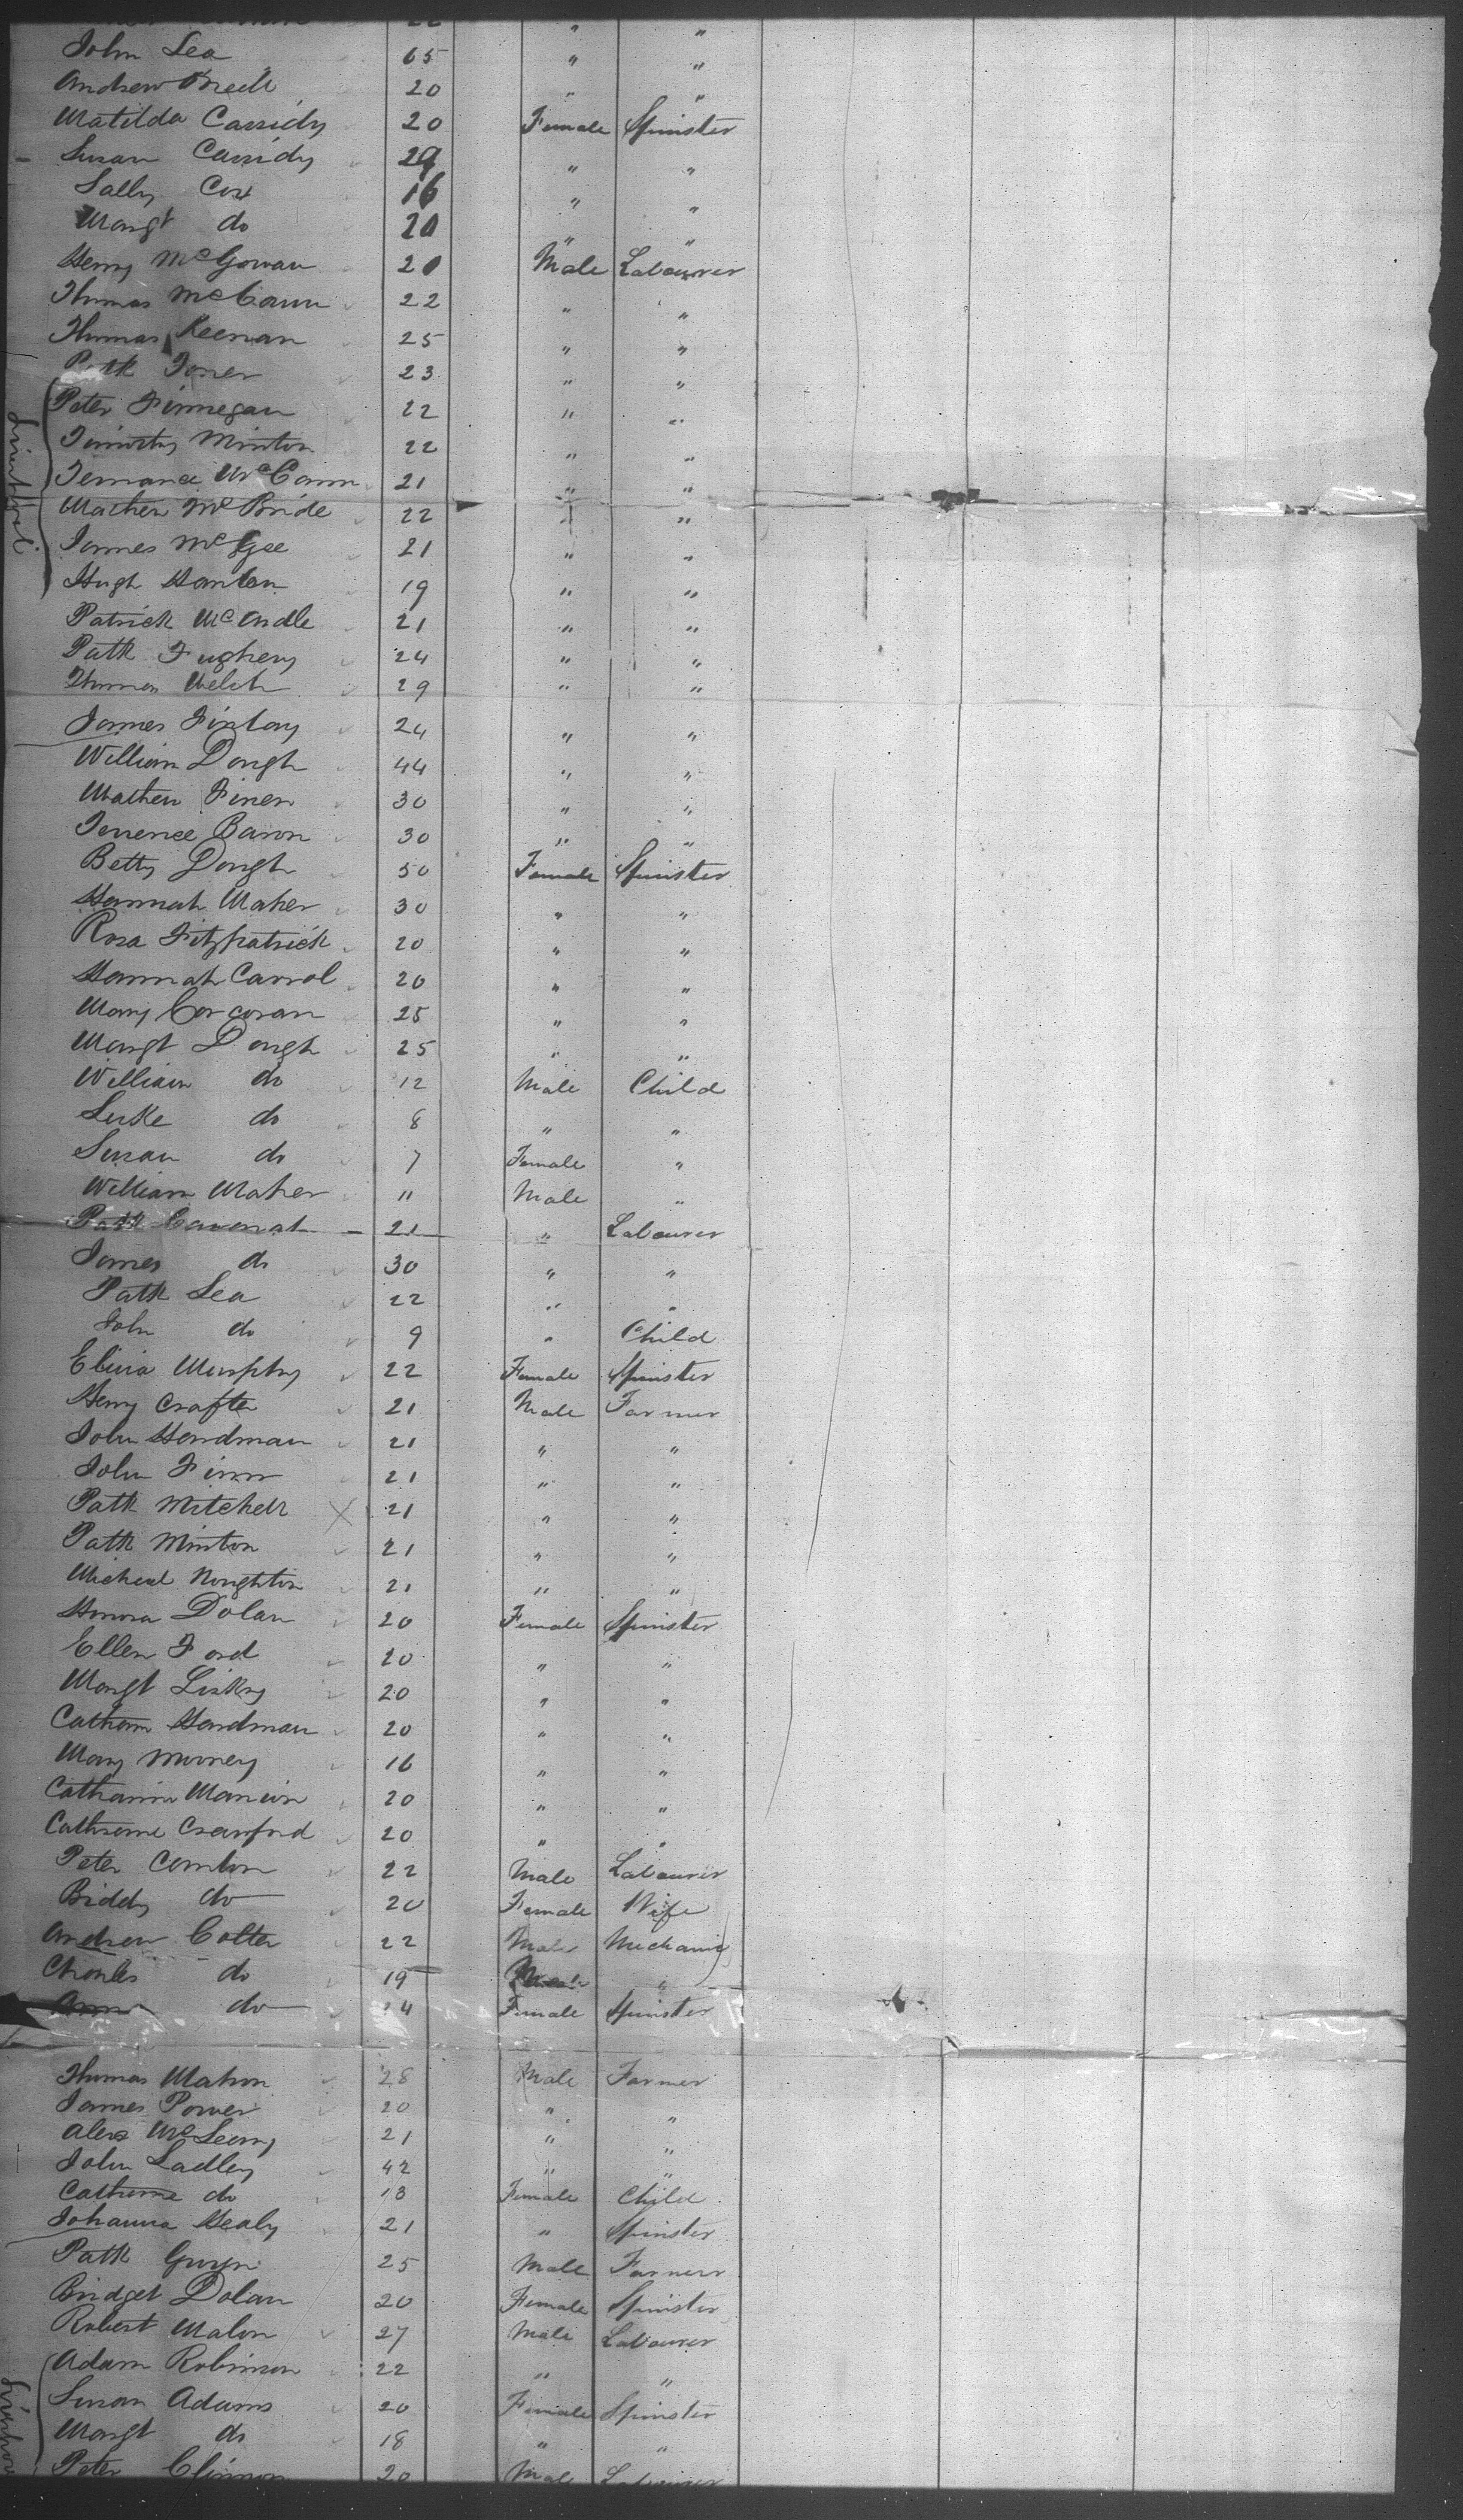 22 " "
John Lea 65 " "
Andrew Oneill 20 " "
Matilda Cassidy 20 Female Spinster
Susan Cassidy 29 " "
Sally Cox 16 " "
Margt do 20 " "
Henry McGowan 20 Male Labourer
Thomas McCann 22 " "
Thomas Keenan 25 " "
Patk Toner 23 " "
Peter Finnegan 22 " "
Timothy Minton 22 " "
Terrance McCann 21 " "
Mathew McBride 22 " "
James McGee 21 " "
Hugh Hanlon 19 " "
Patrick McArdle 21 " "
Patk Fughery 24 " "
Thomas Welch 29 " "
James Finlay 24 " "
William Dough 44 " "
Mathew Finen 30 " "
Terrence Baron 30 " "
Betty Dough 50 Female Spinster
Hannah Maher 30 " "
Rosa Fitzpatrick 20 " "
Hannah Carrol 20 " "
Mary Corcoran 25 " "
Margt Dough 25 " "
William do 12 Male Child
Luke do 8 " "
Susan do 7 Female "
William Maher 11 Male "
Patk Cavanah 21 " Labourer
James do 30 " "
Patk Lea 22 " "
John do 9 " Child
Eliza Murphy 22 Female Spinster
Henry Crafter 21 Male Farmer
John Hardman 21 " "
John Finn 21 " "
Patk Mitchell X 21 " "
Patk Minton 21 " "
Micheal Noughton 21 " "
Honora Dolan 20 Female Spinster
Ellen Ford 20 " "
Margt 20 " "
Hardman 20 " "
Mary Murney 16 " "
20 " "
Catherine Crawford 20 " "
Peter Conlon 22 Male Labourer
Biddy do 20 Female Wife
Andrew Colter 22 Male Mechanic
Charles do 19 Male "
Ann do 24 Female Spinster
Thomas Mahon 28 Male Farmer
James Power 20 " "
Alex 21 " "
John Ladley 42 " "
Catherine do 13 Female Child
Johanna Healy 21 " Spinster
Patk Gwyn 25 Male Farmer
Bridget Dolan 20 Female Spinster
Robert Malon 27 Male Labourer
Adam Robinson 22 " "
Susan Adams 20 Female Spinster
Margt do 18 " "
Peter 20 Male Labourer